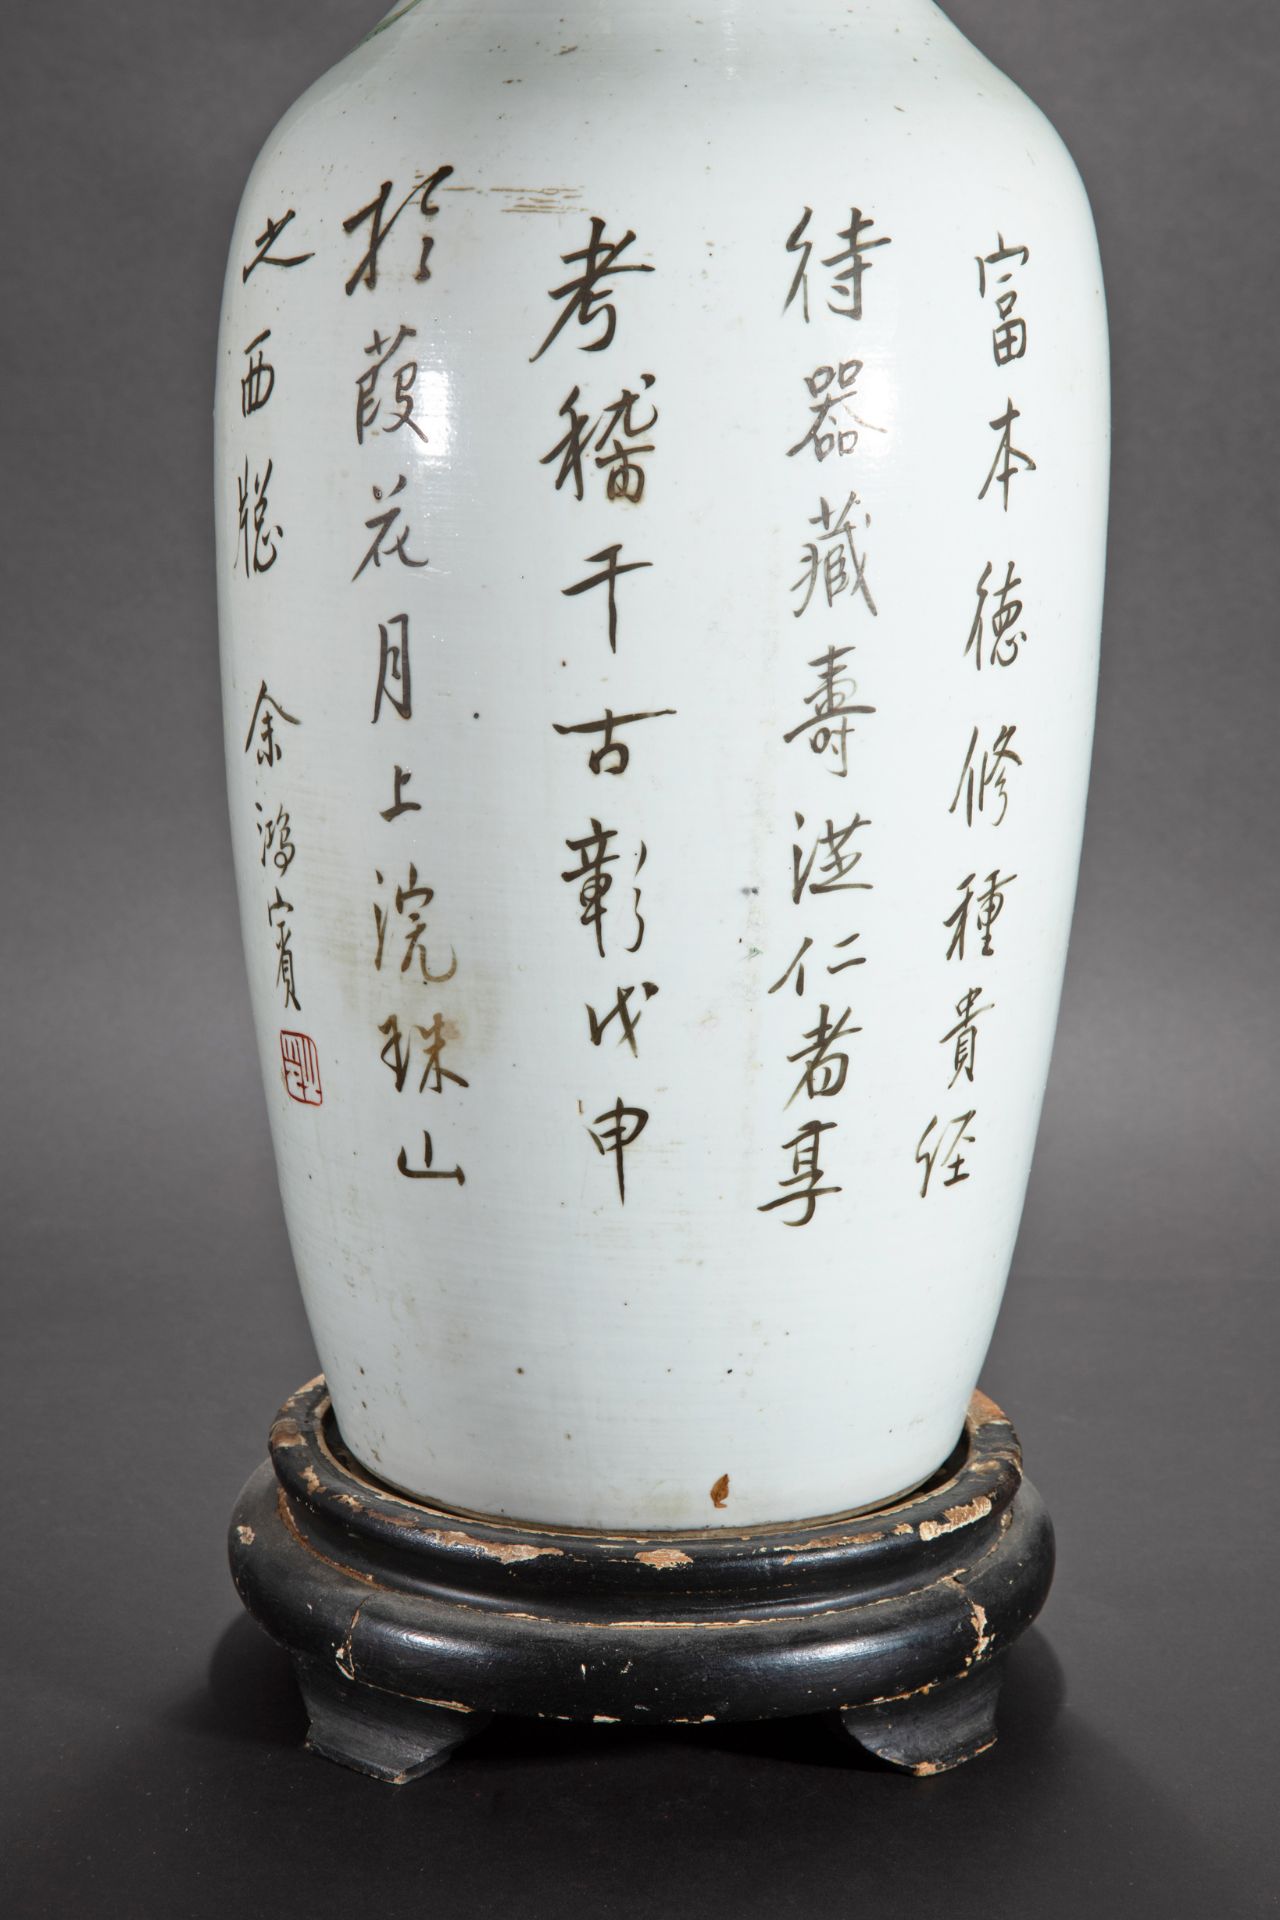 富本德修種貴経
待器藏壽從仁者享
考稽千古彰戊申
於葭花月上浣珠山
之西牕 余鴻賓